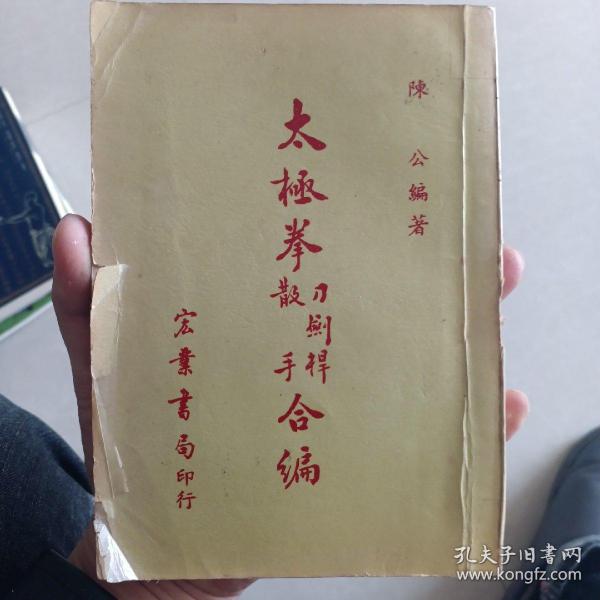 陳公編著
太極拳刀劍桿散手合編
宏業書局印行
孔夫子旧书网
www.kongfz.com